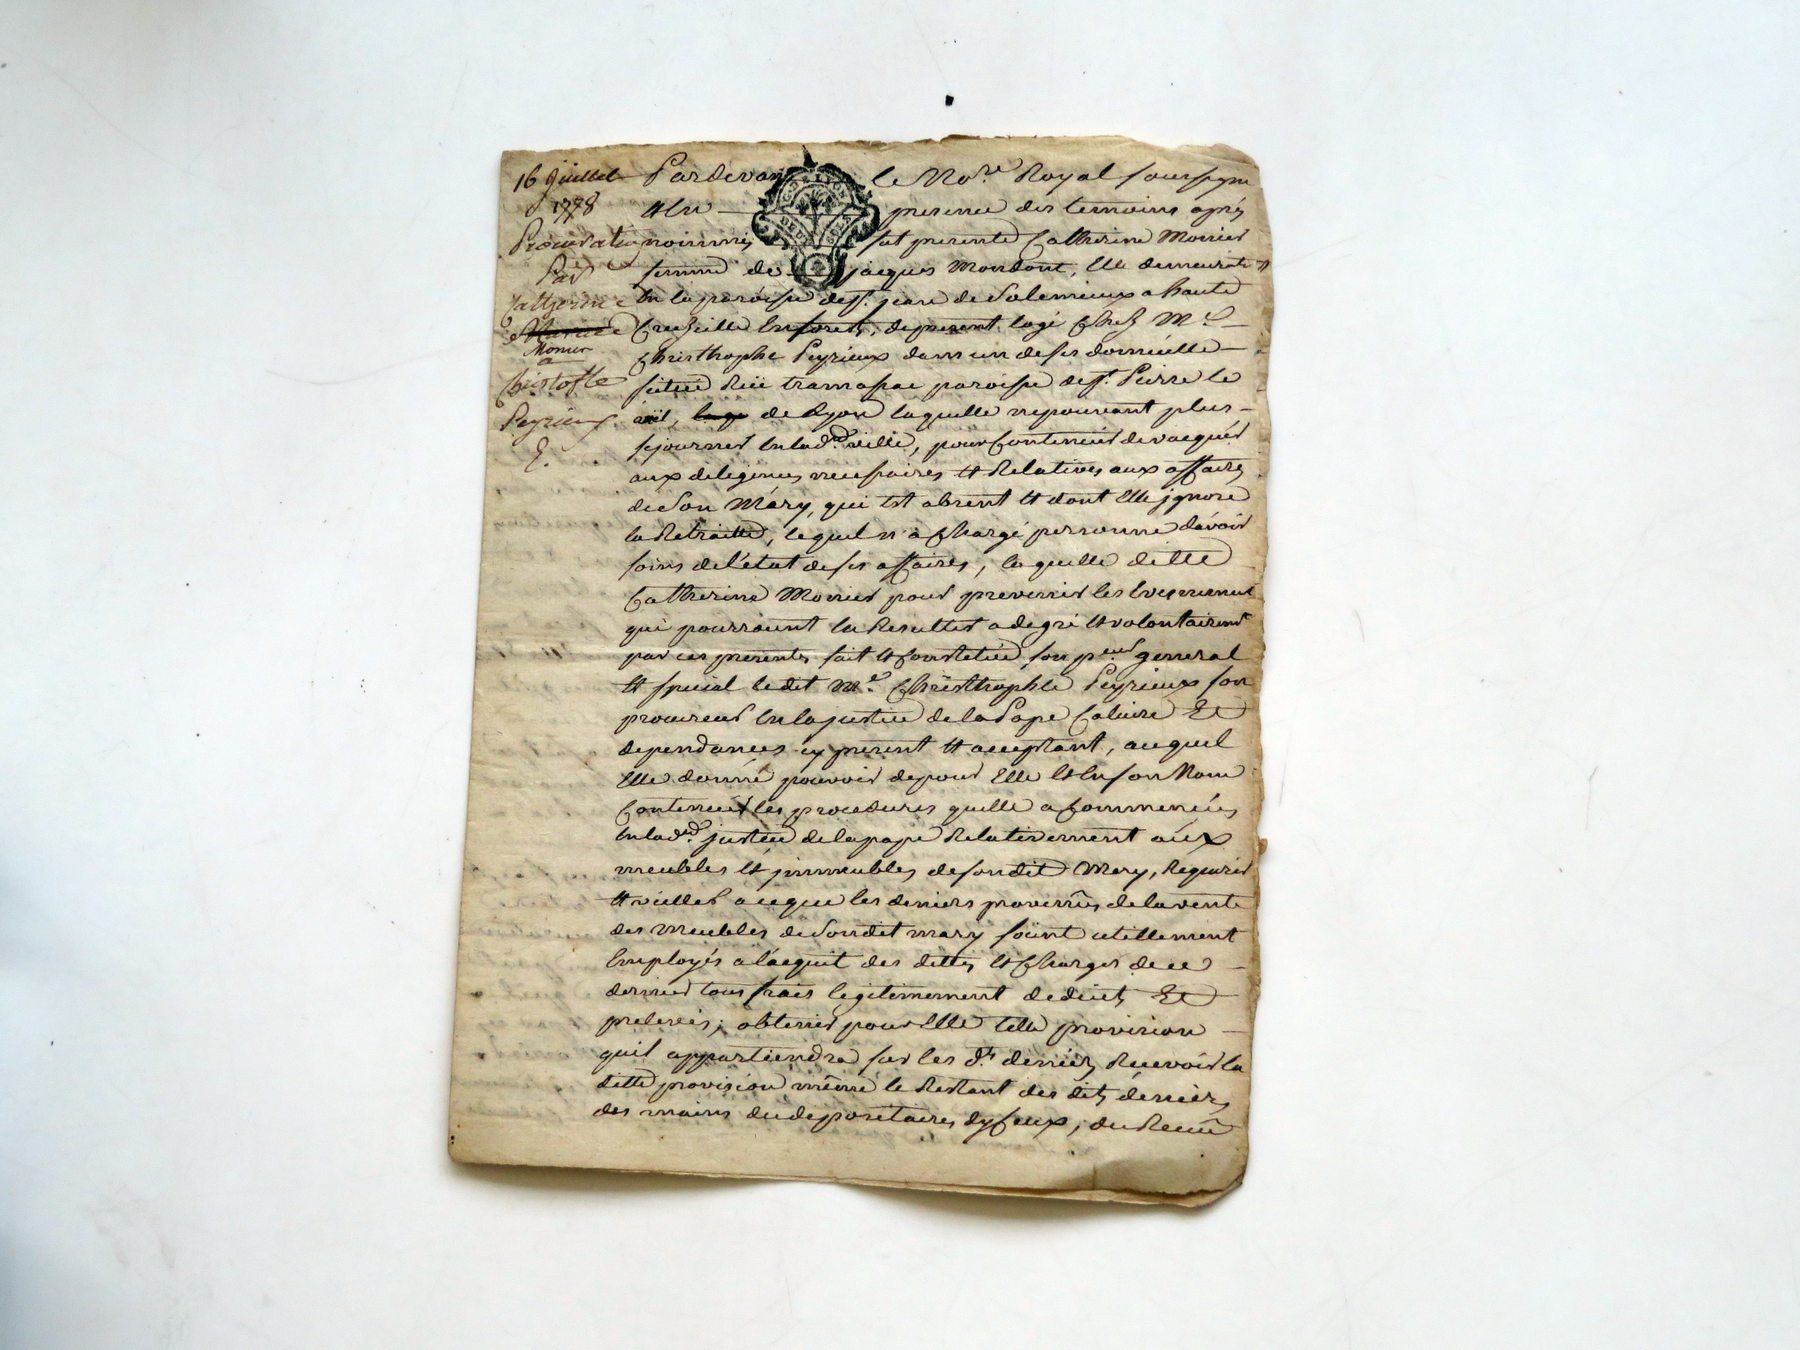 16 Juillet
1778
Procuration
Par
Catherine
Monier
a
Christofle
Peyrieux
G. DE LYON
DEUX SOLS
Pardevant le No.re Royal soussigné
et en presence des temoins aprés
nommés fut presente Catherine Monier
femme de jacques Mondont, Elle demeurante
en la paroisse de st. jean de Solemieux a haute
En forests, de present logé chez Me.
Christhophe Peyrieux dans un de ses domicille
situé Rüe tramassac paroisse de st. Pierre le
viel, de Lyon laquelle ne pouvant plus
sejourner en lad. ville, pour Continuer de vacquer
aux diligences necessaires et Relatives aux affaires
de Son Máry, qui Est absent et dont Elle jgnore
la Retraitte, lequel n'a Chargé personne d'avoir
soins de l'état de ses affaires, laquelle ditte
Catherine Monier pour prevenir les Evenements
qui pourroient En Resulter a de gré et volontairement
par ces presentes fait et Constitué son pcur general
et special ledit Me. Christhophle Peyrieux son
procureur En la justice de la Pape Caluire Et
dependances cy present et acceptant, auquel
Elle donne pouvoir de pour Elle et En son Nom
Continuer les procedures quelle a Commencées
En lad. justice de la pape Relativement aux
meubles et jmmeubles de son dit Mary, Requerir
et veiller a ce que les deniers provenus de la vente
des meubles de Son dit mary soient utillement
Employés a l'acquit des dettes et Charges de ce
dernier tous frais legitimement deduits Et
prelevés; obtenir pour Elle telle provision
quil appartiendra sur les dts deniers, Recevoir la
ditte provision même le Restant des dits deniers
des mains du depositaires dyceux, du Recu